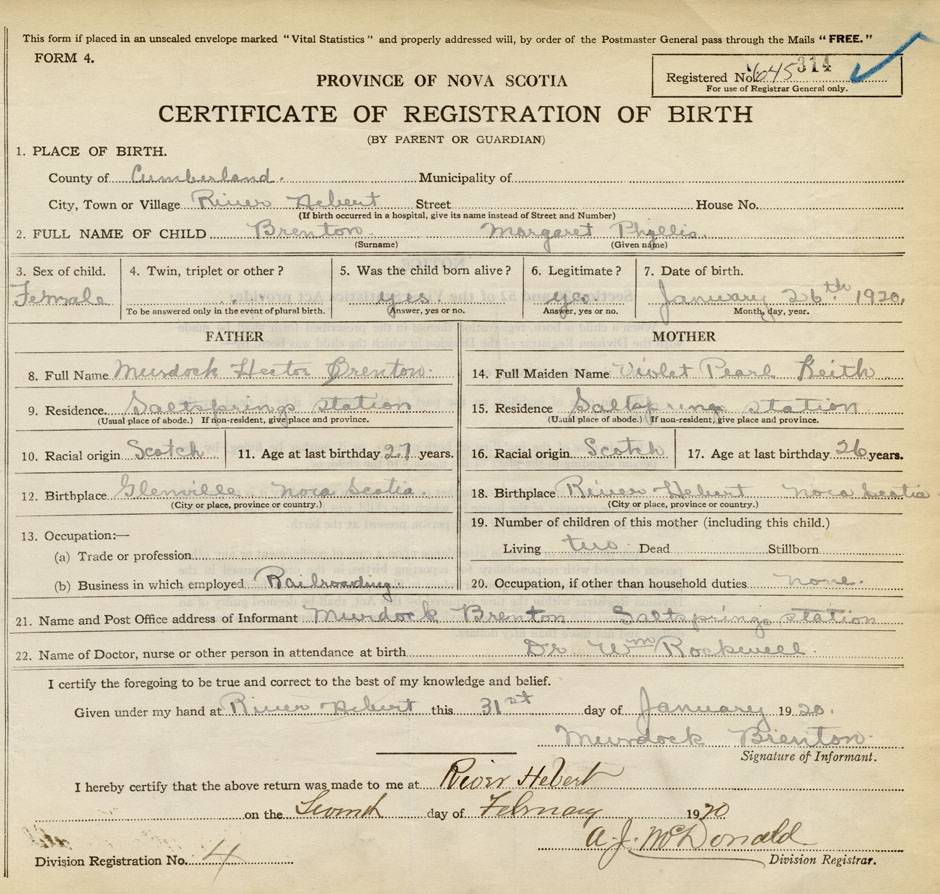 This form if placed in an unsealed envelope marked "Vital Statistics" and properly addressed will, by order of the Postmaster General pass through the Mails "FREE."
FORM 4.
Registered No. 314
For use of Registrar General only.
PROVINCE OF NOVA SCOTIA
CERTIFICATE OF REGISTRATION OF BIRTH
(BY PARENT OR GUARDIAN)
1. PLACE OF BIRTH.
County of Cumberland. Municipality of
City, Town or Village River Hebert Street House No.
(If birth occurred in a hospital, give its name instead of Street and Number)
2. FULL NAME OF CHILD Brenton Margaret Phyllis
(Surname) (Given name)
3. Sex of child. 4. Twin, triplet or other? 5. Was the child born alive? 6. Legitimate? 7. Date of birth.
Female yes yes January 26th 1920,
To be answered only in the event of plural birth. Answer, yes or no. Answer, yes or no. Month, day, year.
FATHER MOTHER
8. Full Name Murdock Hector Brenton. 14. Full Maiden Name Violet Pearl Keith
9. Residence Saltsprings station 15. Residence Saltsprings station
(Usual place of abode.) If non-resident, give place and province. (Usual place of abode.) If non-resident, give place and province.
10. Racial origin Scotch 11. Age at last birthday 27 years. 16. Racial origin Scotch 17. Age at last birthday 26 years.
12. Birthplace Glenville Nova Scotia. 18. Birthplace River Hebert Nova Scotia
(City or place, province or country.) (City or place, province or country.)
19. Number of children of this mother (including this child.)
13. Occupation:—
(a) Trade or profession Living two Dead Stillborn
(b) Business in which employed Railroading. 20. Occupation, if other than household duties none.
21. Name and Post Office address of Informant Murdock Brenton Saltsprings station
22. Name of Doctor, nurse or other person in attendance at birth Dr Wm Rockwell.
I certify the foregoing to be true and correct to the best of my knowledge and belief.
Given under my hand at River Hebert this 31st day of January 1920.
Murdock Brenton.
Signature of Informant.
I hereby certify that the above return was made to me at River Hebert
on the Second day of February 1920
A. J. McDonald
Division Registration No. 4 Division Registrar.